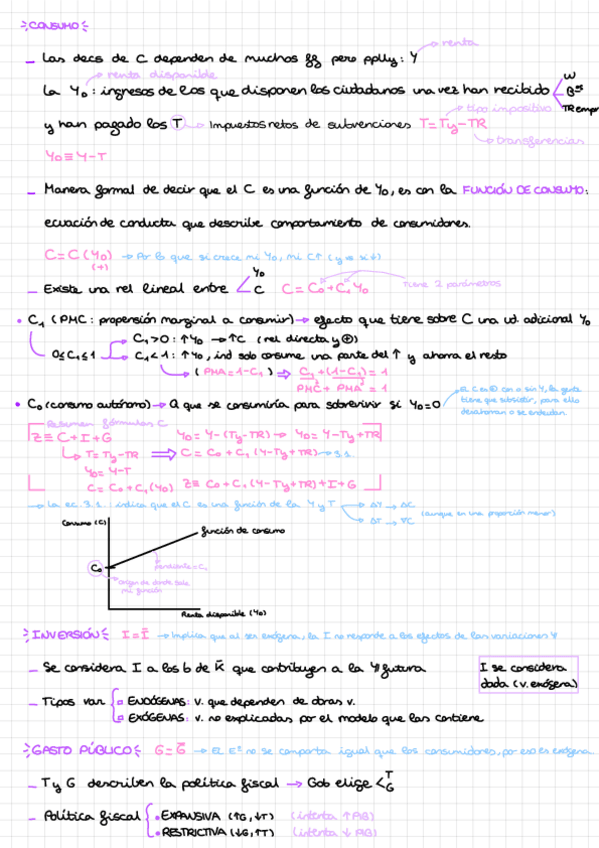 CONSUMO
– Las decs de C dependen de muchos ff pero pplly: Y → renta
renta disponible
La YD: ingresos de los que disponen los ciudadanos una vez han recibido < W
Bºs
TR empr
tipo impositivo
y han pagado los T → Impuestos netos de subvenciones T = Ty - TR
transferencias
YD ≡ Y - T
– Manera formal de decir que el C es una función de YD, es con la FUNCIÓN DE CONSUMO:
ecuación de conducta que describe comportamiento de consumidores.
C = C (YD) → Por lo que si crece mi YD, mi C↑ (y vs si ↓)
(+)
– Existe una rel lineal entre < YD
C
C = C0 + C1 YD
Tiene 2 parámetros
• C1 (PMC: propensión marginal a consumir) → efecto que tiene sobre C una ud. adicional YD
0 ≤ C1 ≤ 1
C1 > 0: ↑YD → ↑C (rel. directa y ⊕)
C1 < 1: ↑YD, ind solo consume una parte del ↑ y ahorra el resto
(PMA = 1 - C1) ⇒ C1 + (1 - C1) = 1
PMC + PMA = 1
• C0 (consumo autónomo) → Q que se consumiría para sobrevivir si YD = 0
El C es ⊕ con o sin Y, la gente
tiene que subsistir, para ello
desahorran o se endeudan.
Resumen fórmulas C
Z ≡ C + I + G
YD = Y - (Ty - TR) → YD = Y - Ty + TR
T = Ty - TR ⇒ C = C0 + C1 (Y - Ty + TR) → 3.1.
YD = Y - T
C = C0 + C1 (YD)
Z ≡ C0 + C1 (Y - Ty + TR) + I + G
→ La ec. 3.1. indica que el C es una función de la Y y T
ΔY → ΔC
ΔT → ∇C
(aunque en una proporción menor)
Consumo (C)
función de consumo
C0
pendiente = C1
origen de donde sale
mi función
Renta disponible (YD)
INVERSIÓN I = Ī → Implica que al ser exógena, la I no responde a los efectos de las variaciones Y
– Se considera I a los b de K̄ que contribuyen a la Y futura
I se considera
dada (v. exógena)
– Tipos var.
ENDÓGENAS: v. que dependen de otras v.
EXÓGENAS: v. no explicadas por el modelo que las contiene
GASTO PÚBLICO G = Ḡ → El Eº no se comporta igual que los consumidores, por eso es exógena.
– T y G describen la política fiscal → Gob elige < T
G
– Política fiscal
• EXPANSIVA (↑G, ↓T) (intenta ↑AG)
• RESTRICTIVA (↓G, ↑T) (intenta ↓AG)